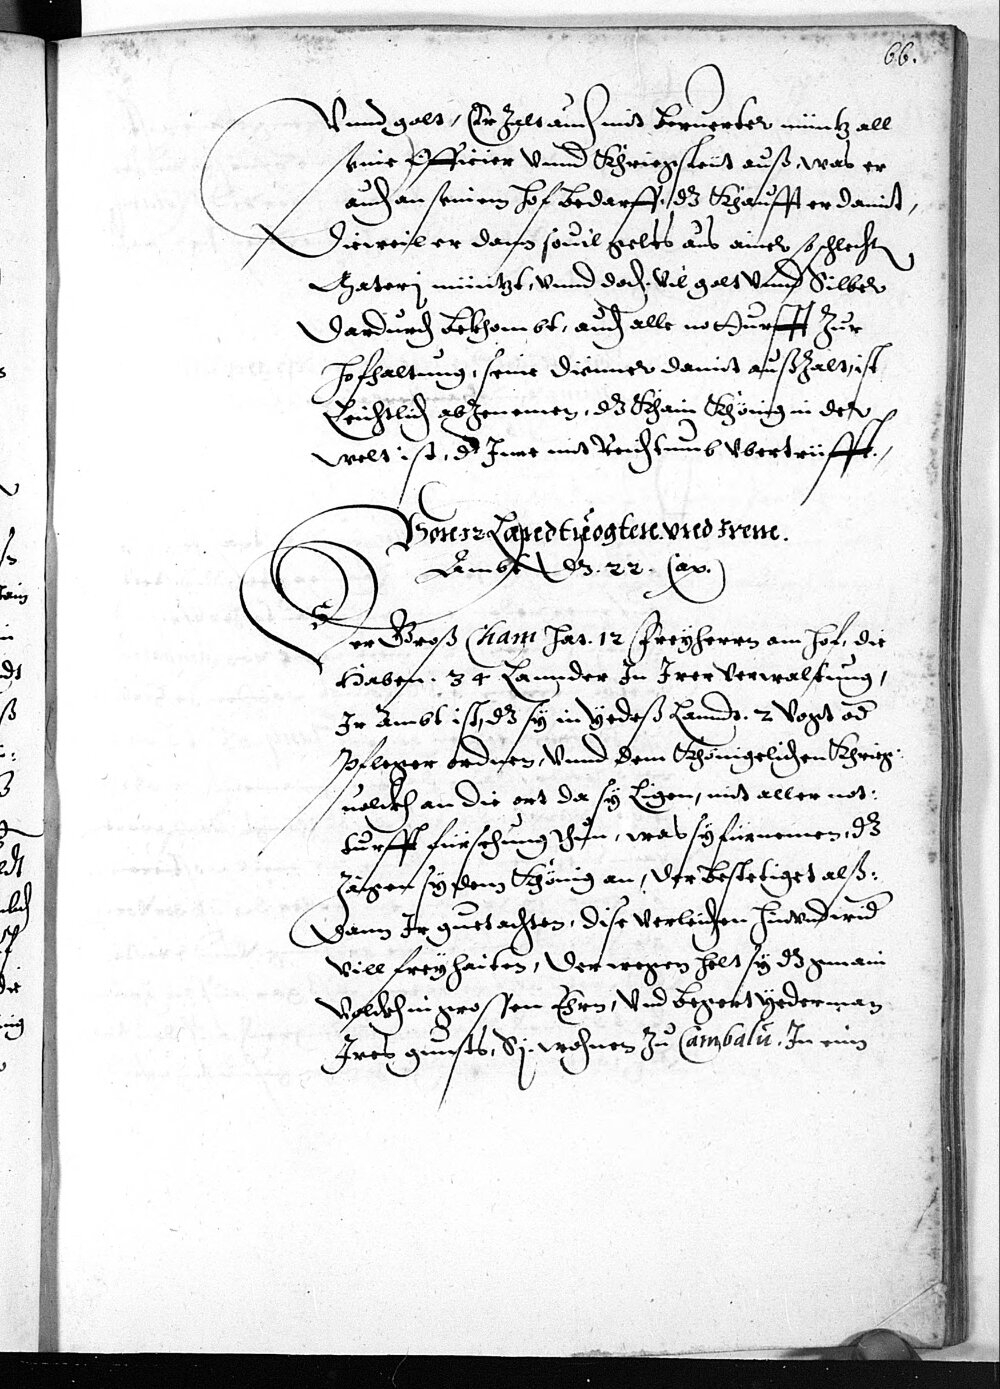 66.
Vnnd golt, Er Zalt auch mit berürter müntz all
seine Officier Vnnd Khriegsleüt auß, was er
auch an seinem hof bedarff, dz Khaufft er damit,
Dieweil er dann souil gelts aus ainer so schlechtn
Materj müntzt, vnnd doch vil golt Vnnd Silber
Dardurch bekhombt, auch alle notturfft Zur
hofhaltung, seine Dienner damit außZalt, ist
Leichtlich abZenemen, dz Khain Khönig in der
welt ist, d Inne mit Reichtumb Vbertrüfft.
Von 12 Landtuögten. vnd Irem.
Ambt dz. 22. Cap.
Der Groß Cham hat. 12 Freyherrn am hof, die
Haben. 34 Lannder In Irer verwaltung,
Ir Ambt ist, dz sy in yedeß Lanndt. 2 Vogt od
Pfleger ordnen, Vnnd dem Khönigelichen Khrieg:
uolckh an die ort da sy Ligen, mit aller not:
turfft fürsehung thun, was sy fürnemen, dz
Zaigen sy dem Khönig an, der bestetiget alß:
Dann Ir guetachten, dise verleichen hin vnd wid
vill freyhaiten, derwegen helt sy dz gmain
Volckh in grossen Ehrn, Vnd begert yederman
Ires gunsts, Sj. wohnen Zu Cambalu. In eim